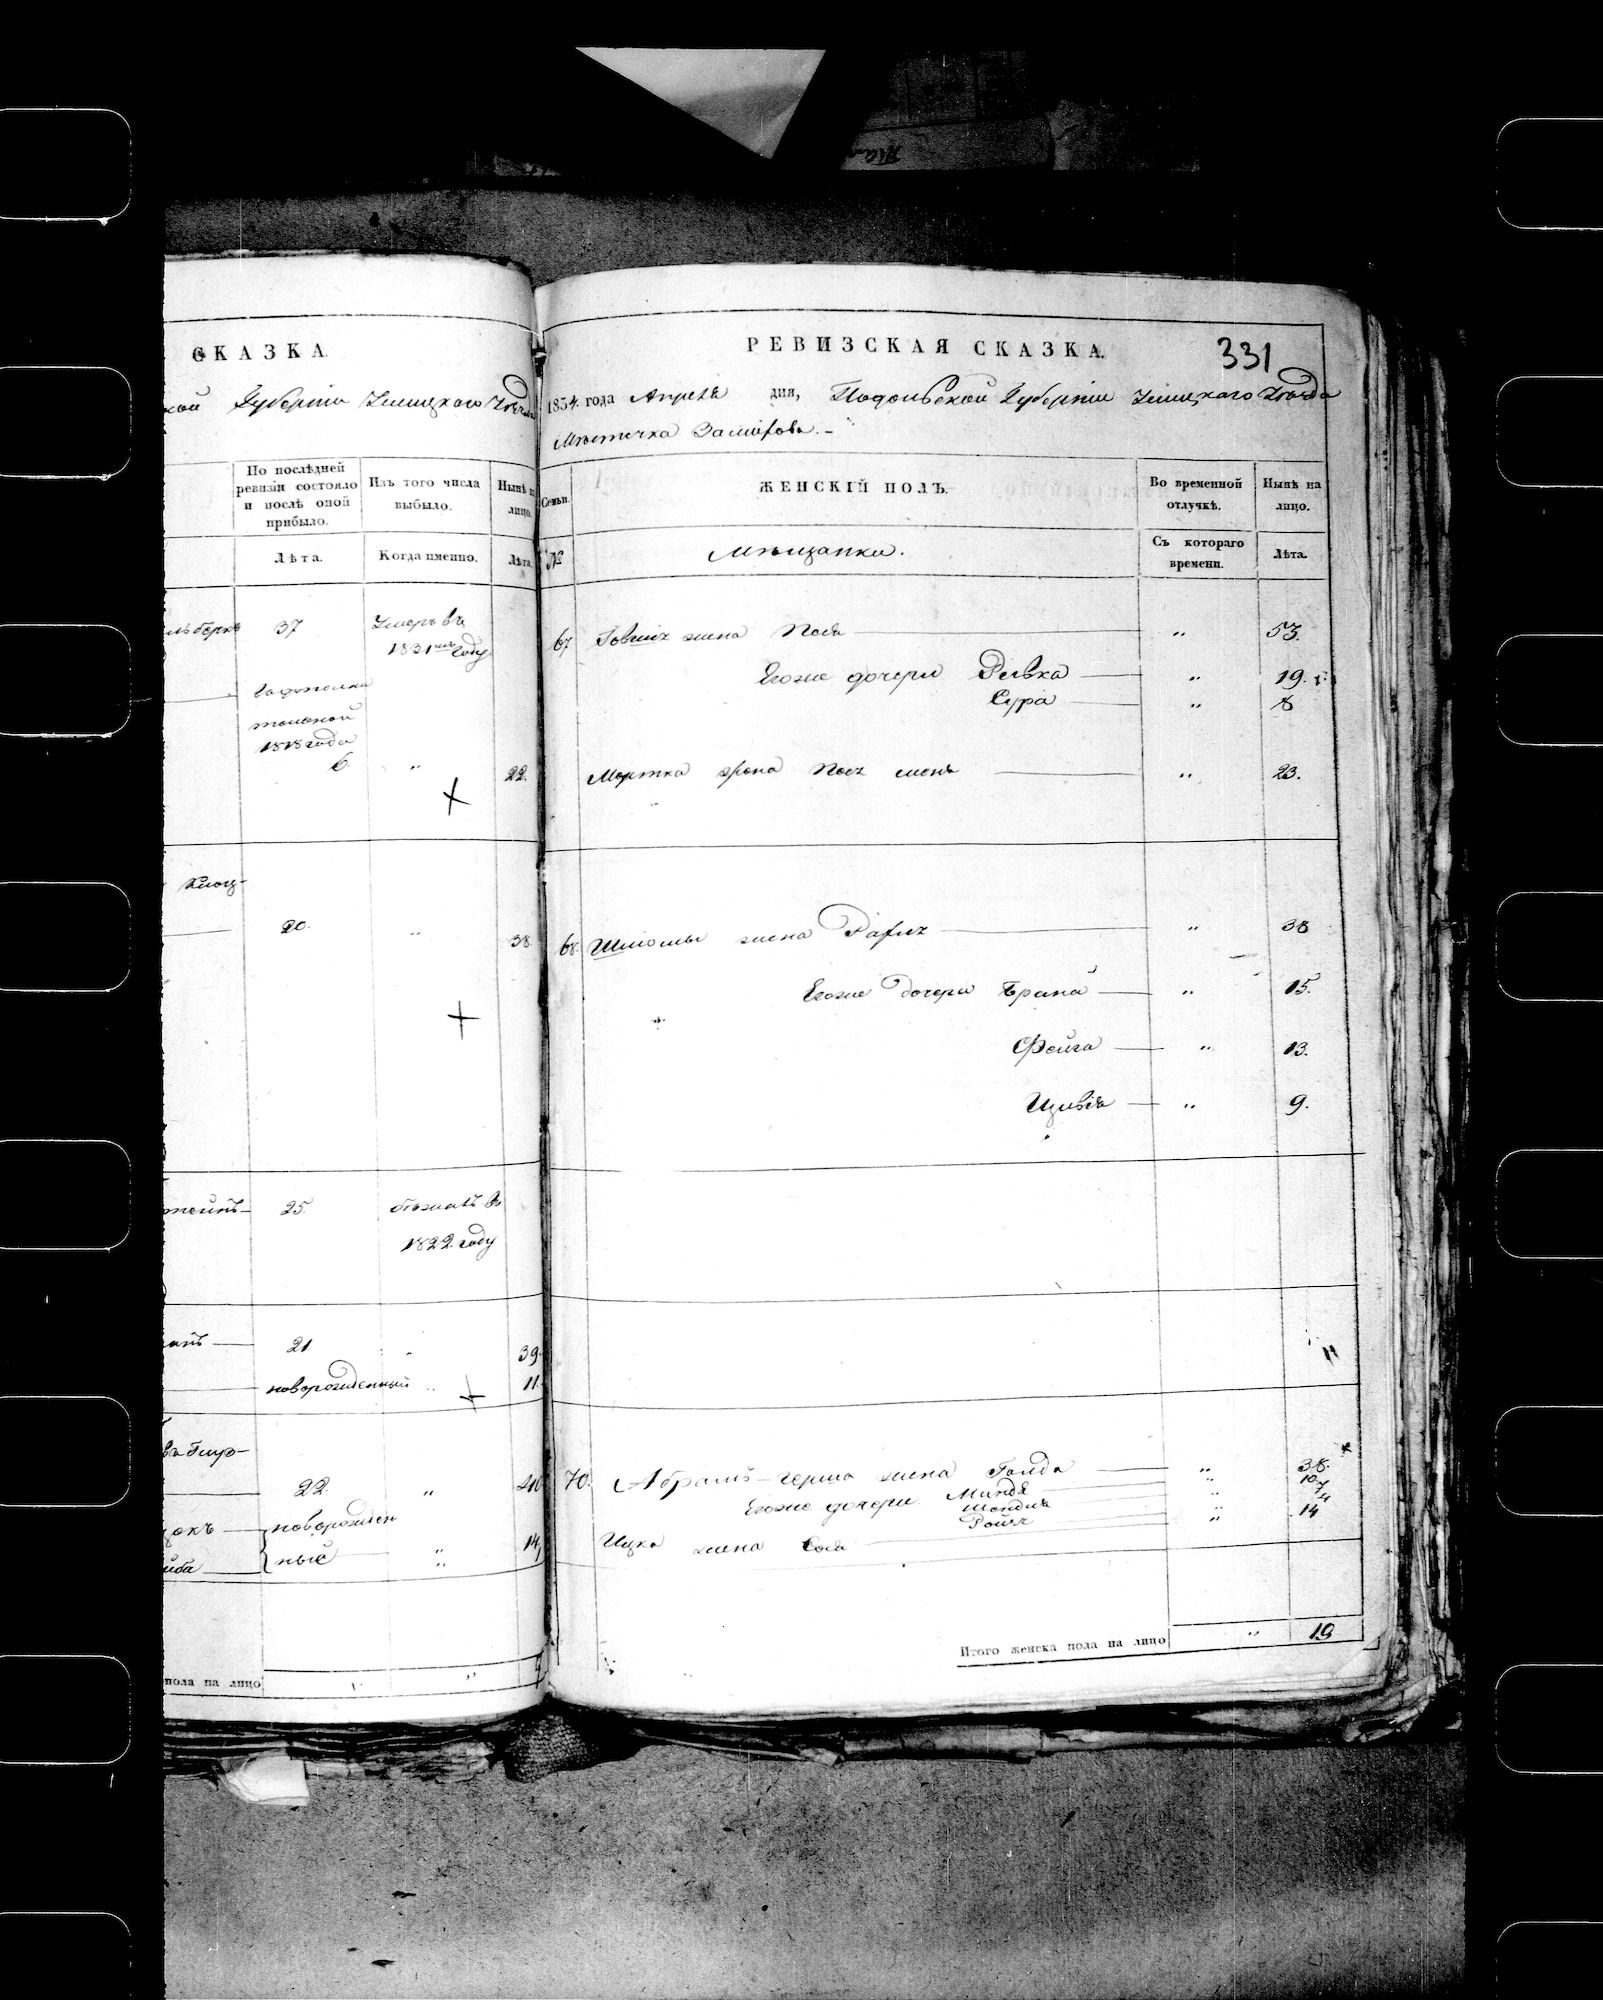 СКАЗКА.
кой Губерніи Ушицкаго Уѣзда
По послѣдней ревизіи состояло и послѣ оной прибыло.
Изъ того числа выбыло.
Нынѣ на лицо.
Лѣта.
Когда именно.
Лѣта.
37 Умеръ въ
1831мъ году
1818 года
6. " 22.
20. " 38.
25. бѣжалъ въ
1822. году
21 " 39.
новорожденный " 11.
22. " 40
новорожден
ные " 14
"
пола на лицо "
РЕВИЗСКАЯ СКАЗКА.
331
1834. года Апреля дня, Подольской Губерніи Ушицкаго Уѣзда
Мѣстечка Замѣхова.
Семьи.
ЖЕНСКІЙ ПОЛЪ.
Во временной отлучкѣ.
Нынѣ на лицо.
№
Мѣщанки.
Съ котораго времени.
Лѣта.
67 жена Песя " 53.
Егоже дочери Ривка " 19.
Сура " 8
Мортка жена " 23.
68. Шліомы жена " 38
Егоже дочери Брана " 15.
Фейга " 13.
Цивія " 9.
11
70. Абрамъ-Герша жена Голда " 38.
Егоже дочери Минда " 10
Шендля " 7
Ройзя " 4
Ицка жена Сося " 14
Итого женска пола на лицо " 19